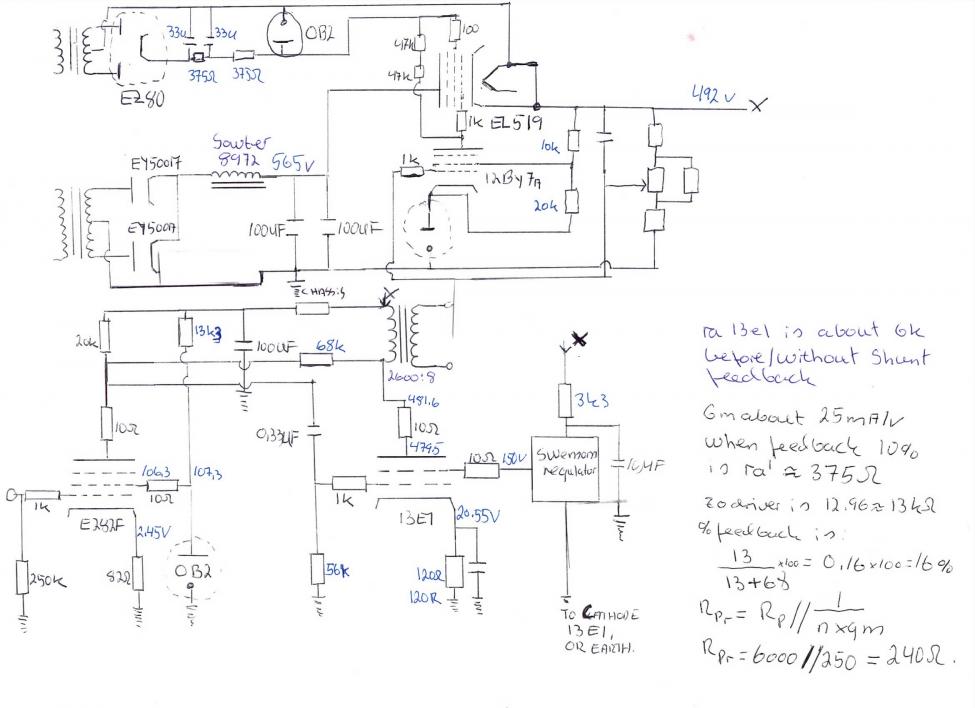 33u 33u
OB2
100
47k
47k
375Ω 375Ω
EZ80
1k EL519
492V X
Sowter
8972 565V
EY500A
EY500A
10k
1k
12BY7A
20k
100UF 100UF
CHASSIS
X
20k
13k3
100UF
68k
2600:8
481.6
10Ω
10Ω
0,33UF
479.5
106.3 107,3
10Ω
10Ω 150V
1k
E282F
1k
13E1
2.45V
20.55V
250k
82Ω
OB2
56k
120Ω
120R
X
3k3
Swenson
regulator
10MF
TO CATHODE
13E1,
OR EARTH.
ra 13e1 is about 6k
before/without Shunt
feedback
Gm about 25mA/V
when feedback 10%
is ra' ≈ 375Ω
zo driver is 12.96 ≈ 13kΩ
% feedback is:
13/(13+68) x100 = 0,16 x100 = 16%
Rpr = Rp // 1/(n x gm)
Rpr = 6000 // 250 = 240Ω.